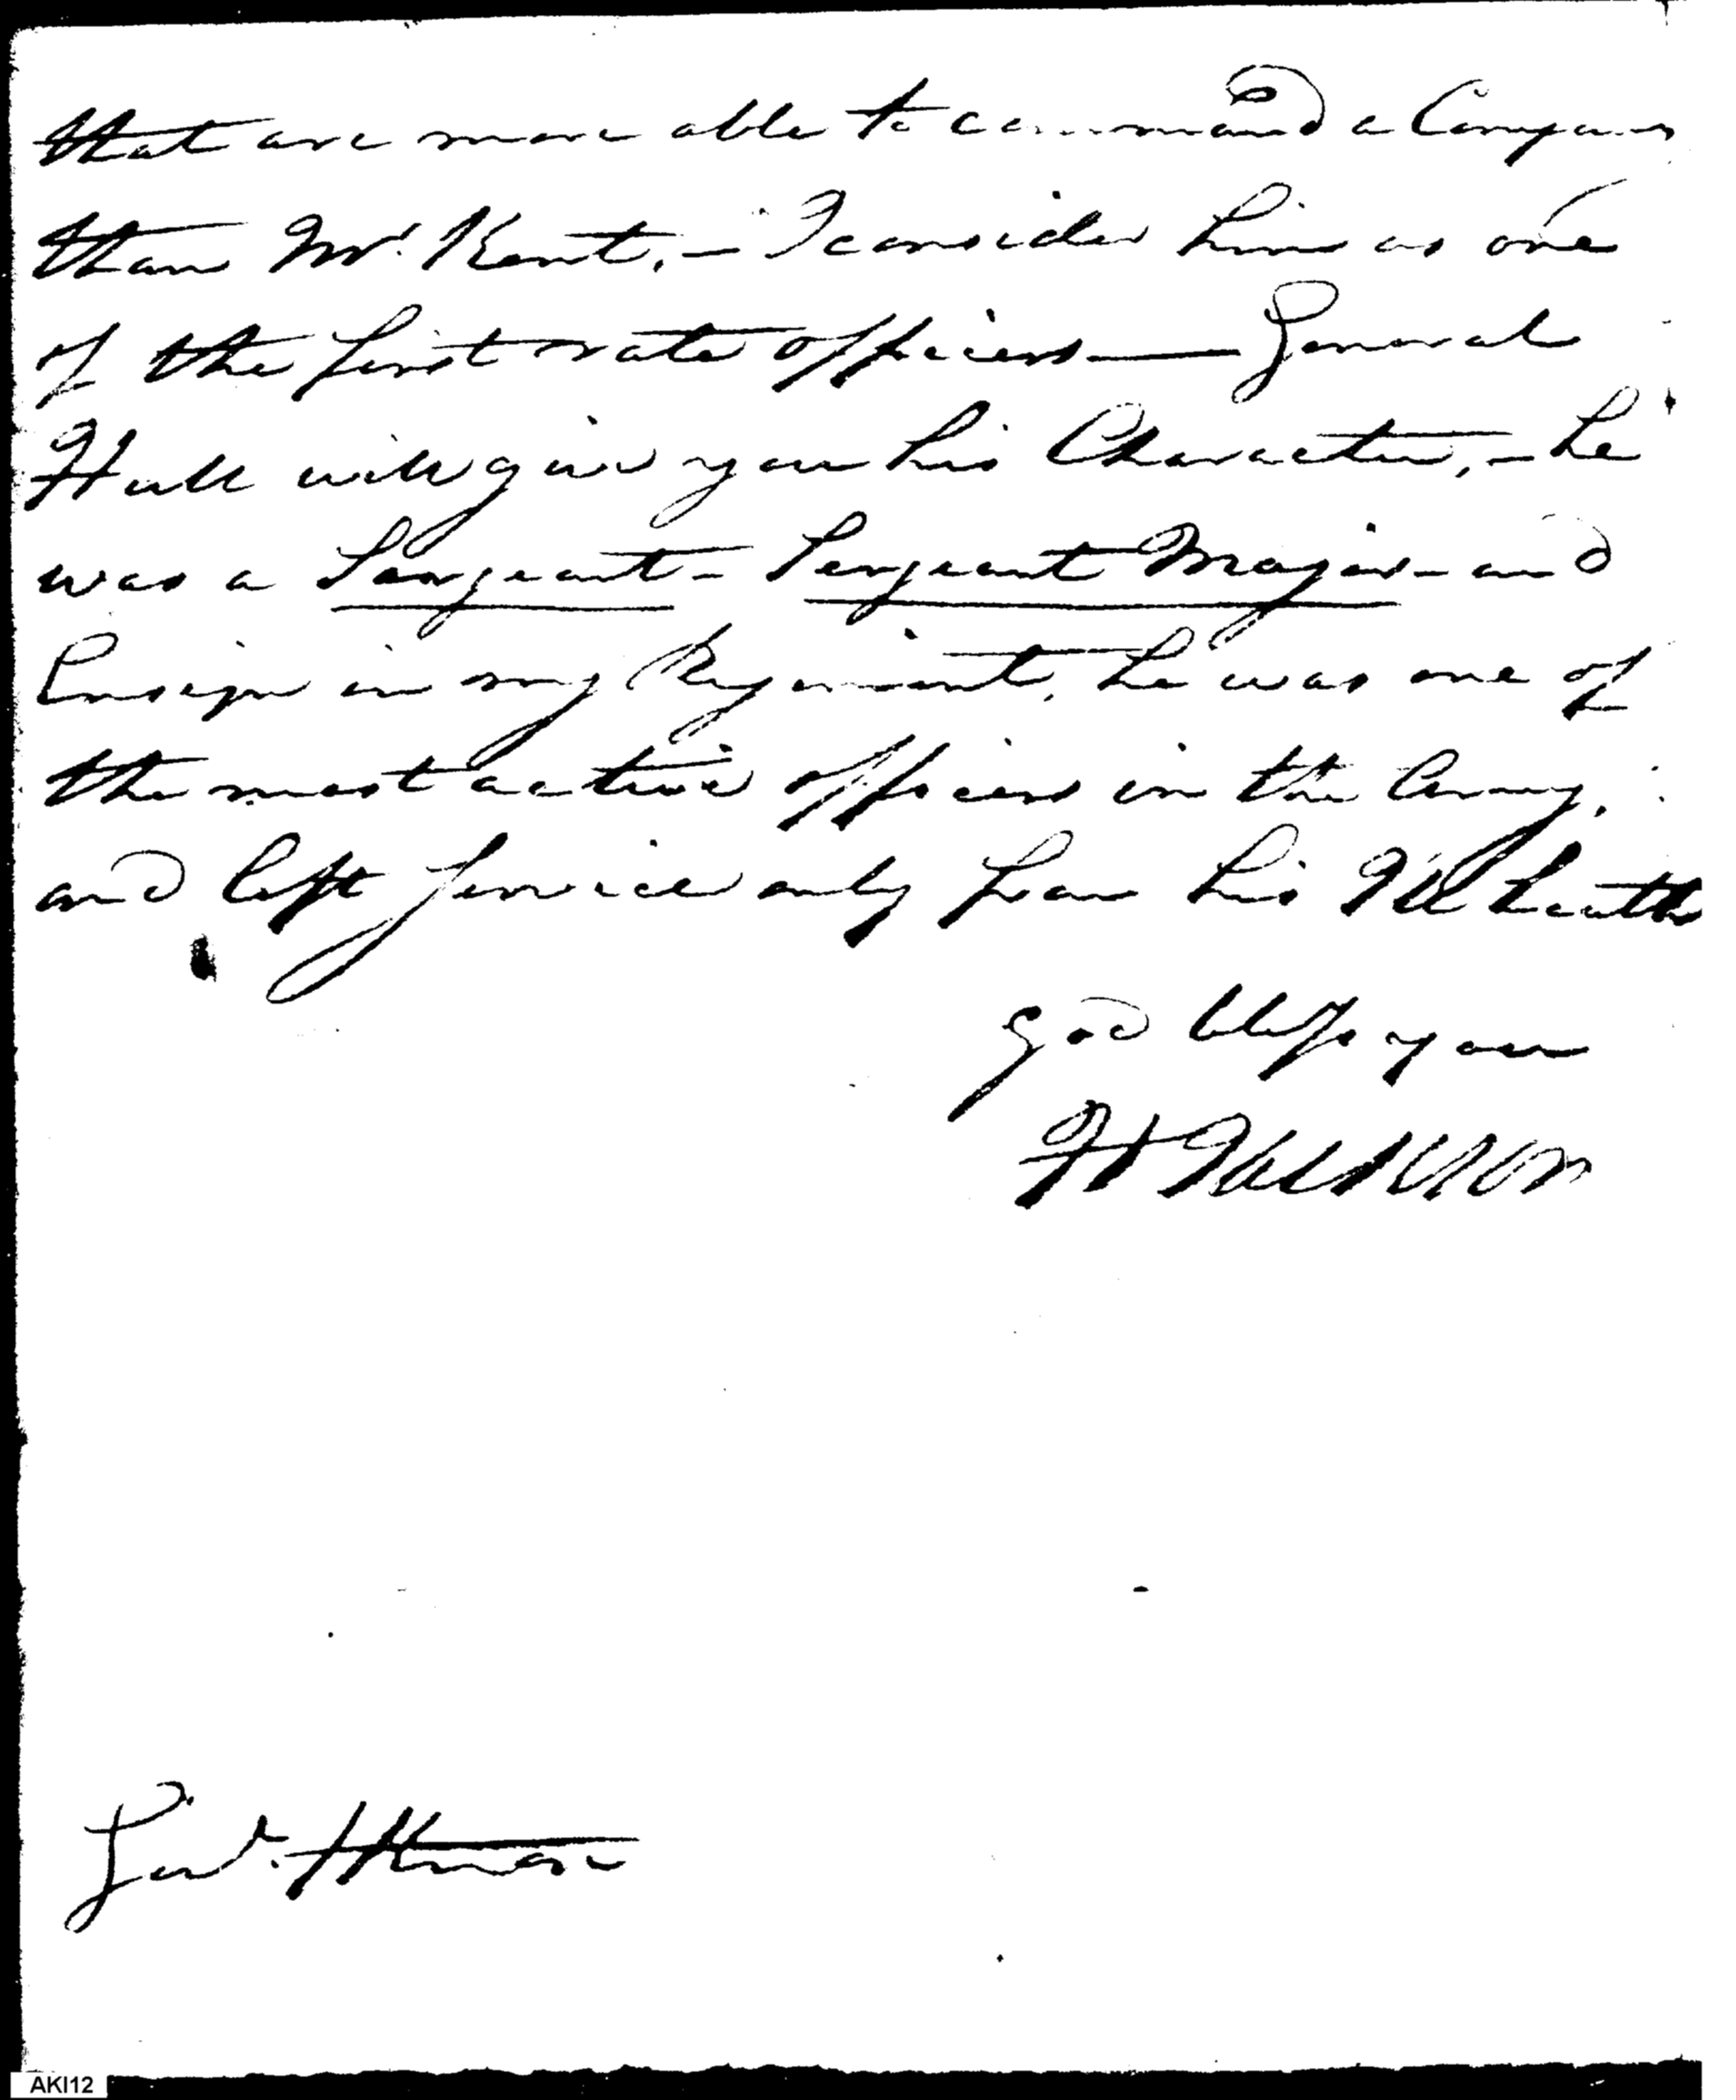 that are more able to command a Company
than Mr. Kent, — I consider him as one
of the first rate officers — General
Hull will give you his Character, — he
was a Sergeant — Sergeant Major — and
Ensign in my Regiment, he was one of
the most active officers in the Army,
and left service only from his Ill health
God bless you
H Jackson
Genl. H Knox
AKI12